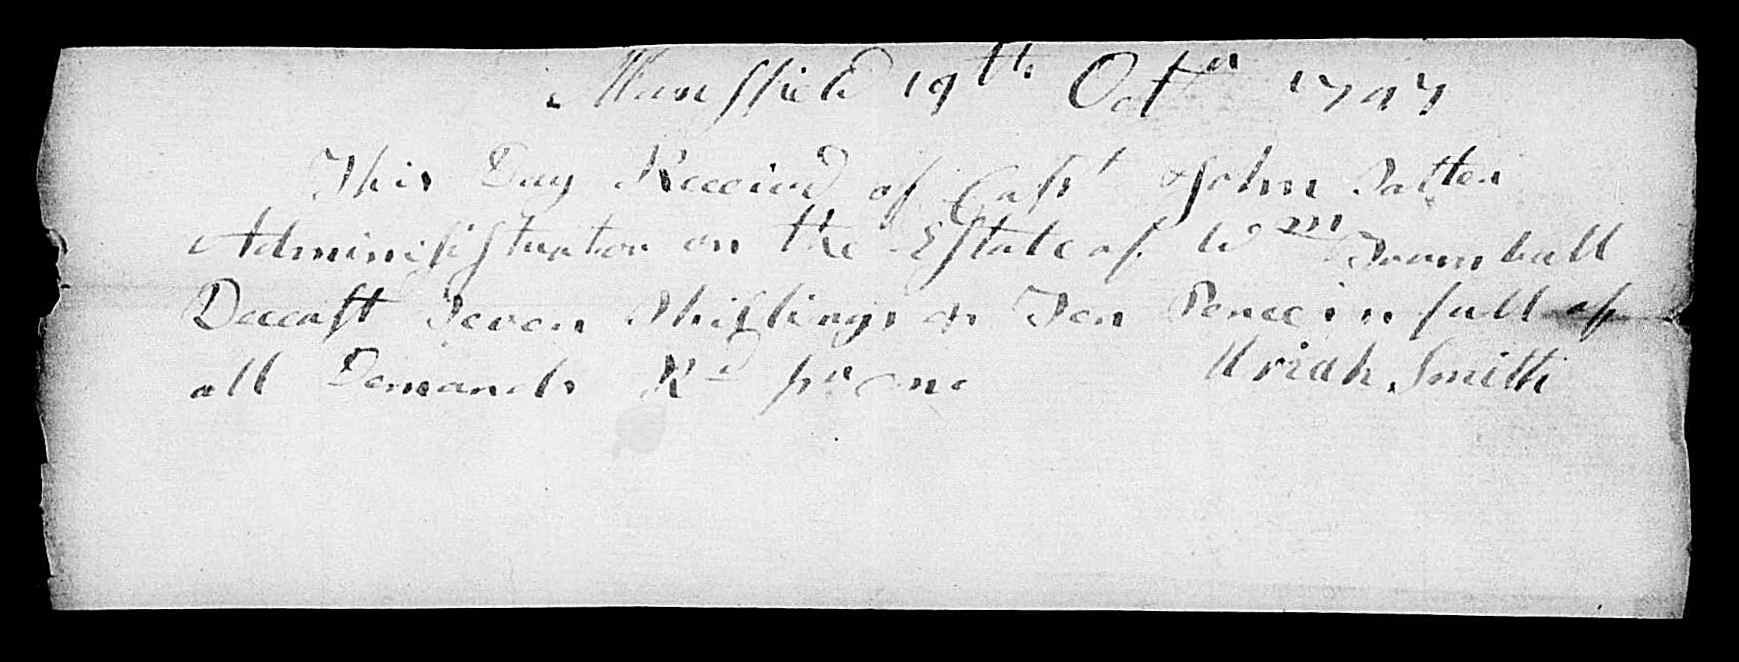 Mansfield 19th Octr 1797
This Day Received of Capt John Salter
Adminisistrator on the Estate of Wm Trumbull
Deceast Seven Shillings & Ten Pence in full of
all Demands Rd pr me Uriah Smith